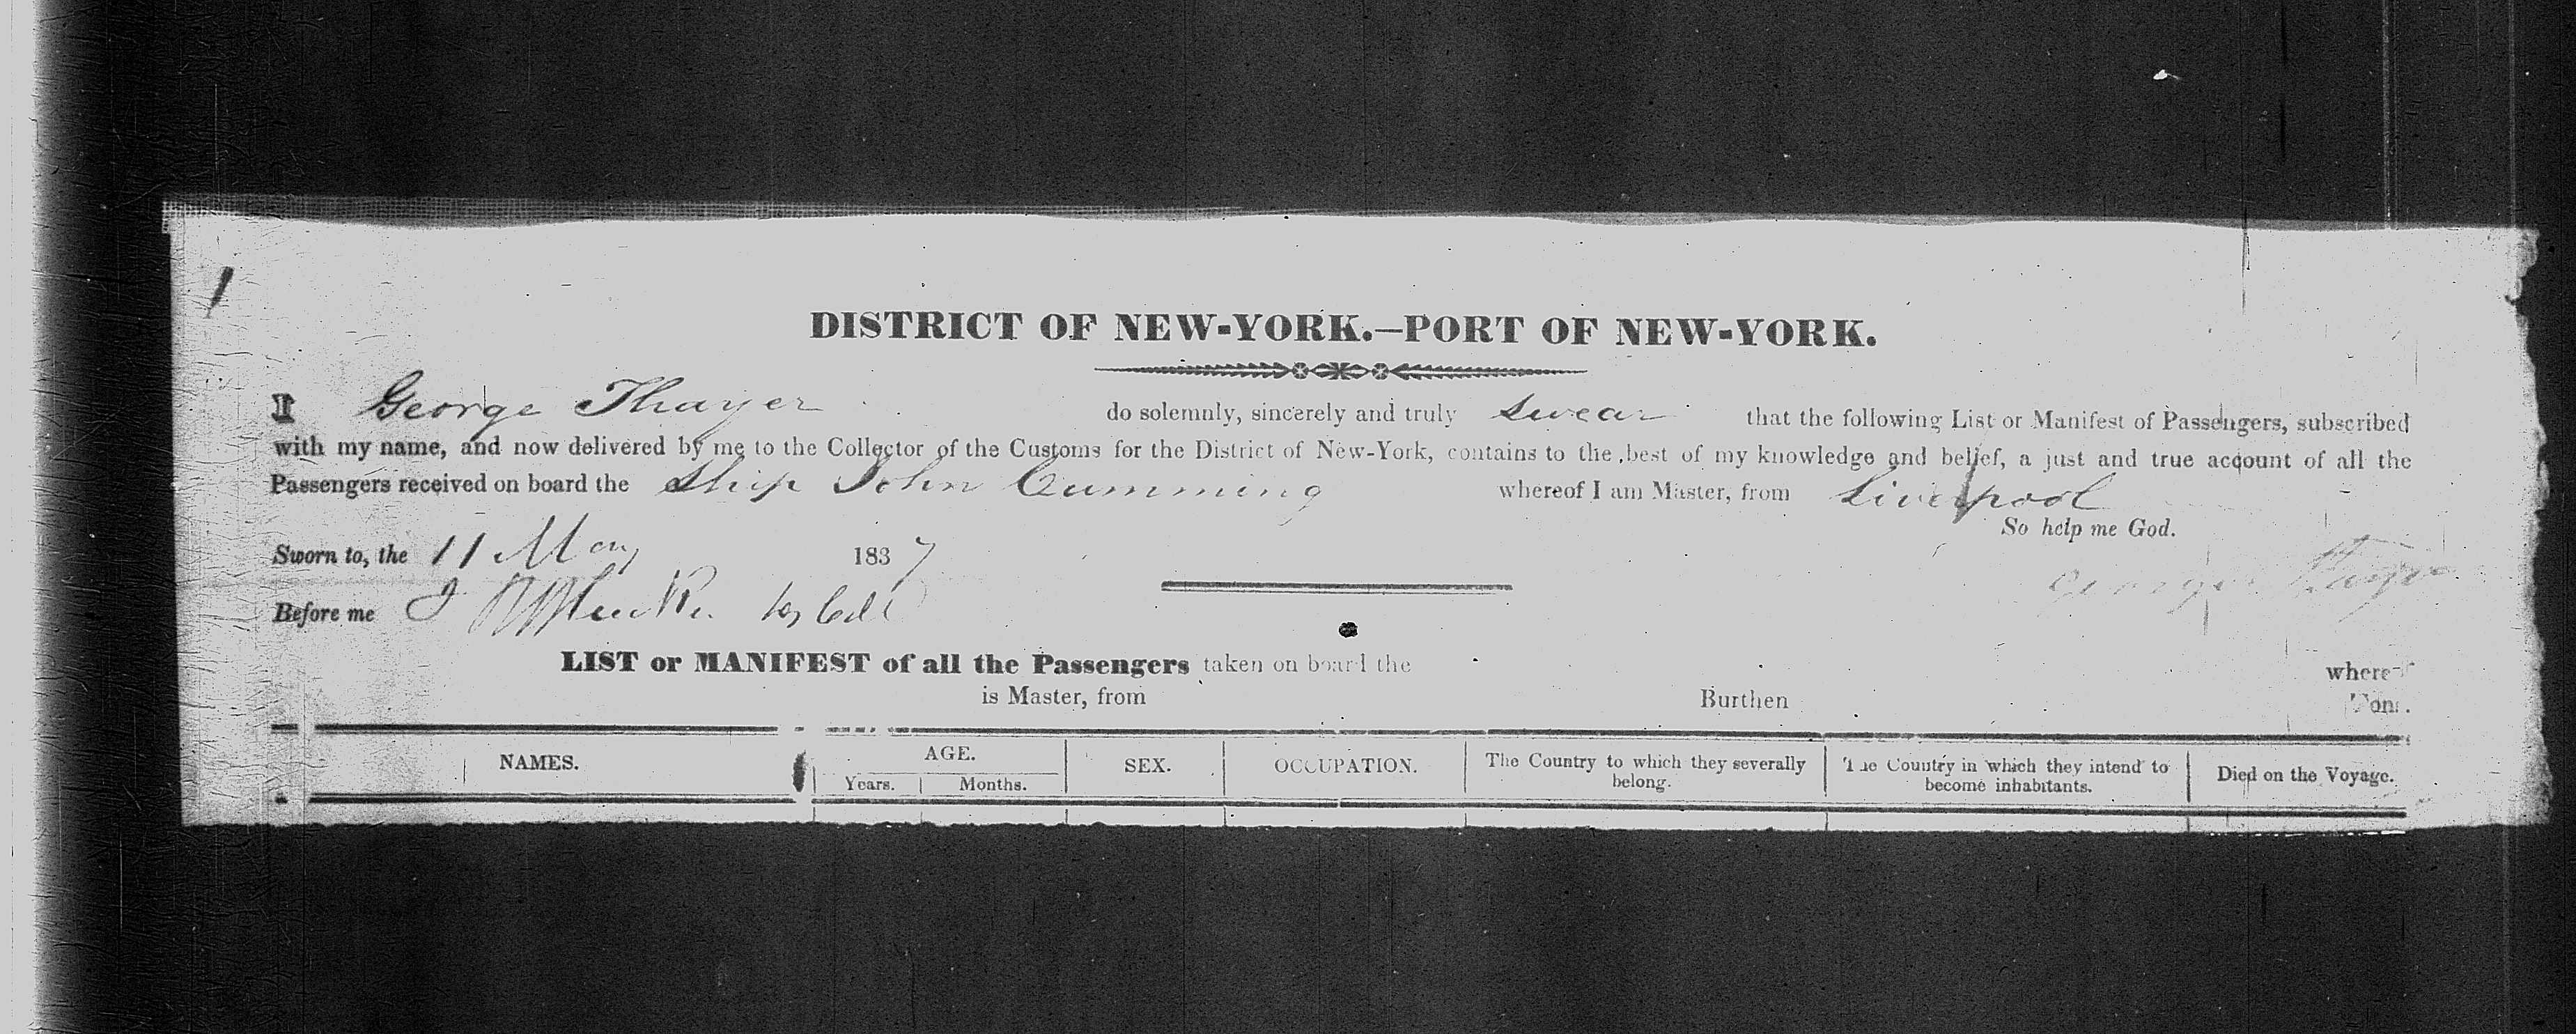 1
DISTRICT OF NEW-YORK.—PORT OF NEW-YORK.
I George Thayer do solemnly, sincerely and truly swear that the following List or Manifest of Passengers, subscribed
with my name, and now delivered by me to the Collector of the Customs for the District of New-York, contains to the best of my knowledge and belief, a just and true account of all the
Passengers received on board the Ship John Cumming whereof I am Master, from Liverpool
So help me God.
Sworn to, the 11 May 1837
George Thayer
Before me J
LIST or MANIFEST of all the Passengers taken on board the whereof
is Master, from Burthen Tons.
NAMES. AGE. SEX. OCCUPATION. The Country to which they severally belong. The Country in which they intend to become inhabitants. Died on the Voyage.
Years. Months.